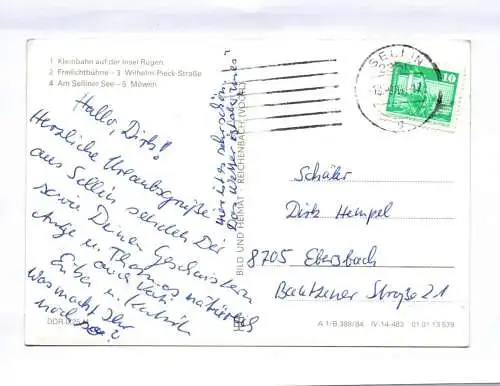 1 Kleinbahn auf der Insel Rügen
2 Freilichtbühne - 3 Wilhelm-Pieck-Straße
4 Am Selliner See - 5 Möwen
Hallo, Dirk!
Herzliche Urlaubsgrüße
aus Sellin senden Dir
sowie Deinen Geschwistern
Antje u. Thomas natürlich
auch Vati
Erika u. Kerstin
Was macht Ihr
noch so?
Hier ist es sehr schön
Das Wetter ist
BILD UND HEIMAT REICHENBACH (VOGTL)
SELLIN
10
Schüler
Dirk Hempel
8705 Ebersbach
Bautzener Straße 21
A 1/B 389/84 IV-14-483 01 01 13 579
DDR